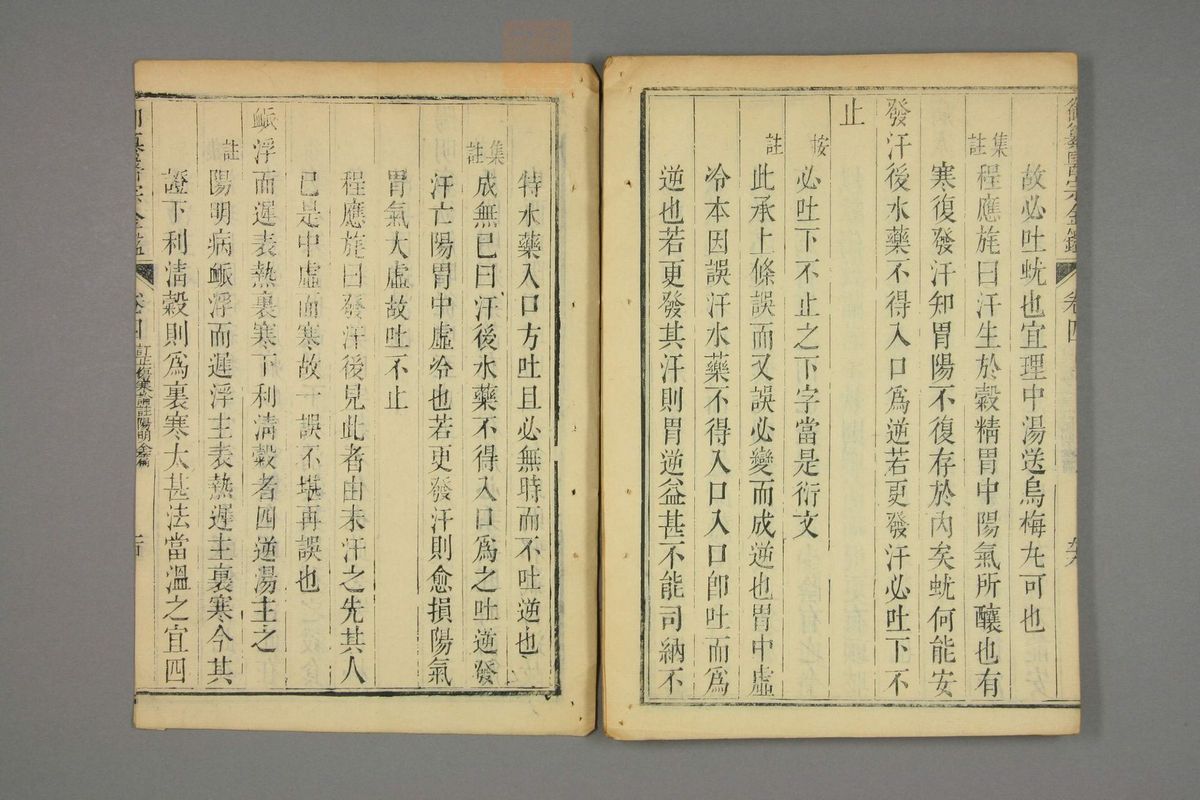 御纂醫宗金鑑 卷四
故必吐蚘也宜理中湯送烏梅丸可也
集註
程應旄曰汗生於穀精胃中陽氣所釀也有
寒復發汗知胃陽不復存於內矣蚘何能安
發汗後水藥不得入口爲逆若更發汗必吐下不
止
按
必吐下不止之下字當是衍文
註
此承上條誤而又誤必變而成逆也胃中虛
冷本因誤汗水藥不得入口入口卽吐而爲
逆也若更發其汗則胃逆益甚不能司納不
特水藥入口方吐且必無時而不吐逆也
集註
成無已曰汗後水藥不得入口爲之吐逆發
汗亡陽胃中虛冷也若更發汗則愈損陽氣
胃氣大虛故吐不止
程應旄曰發汗後見此者由未汗之先其人
已是中虛而寒故一誤不堪再誤也
脈浮而遲表熱裏寒下利淸穀者四逆湯主之
註
陽明病脈浮而遲浮主表熱遲主裏寒今其
證下利淸穀則爲裏寒太甚法當溫之宜四
御纂醫宗金鑑 卷四 訂正傷寒論註陽明全篇